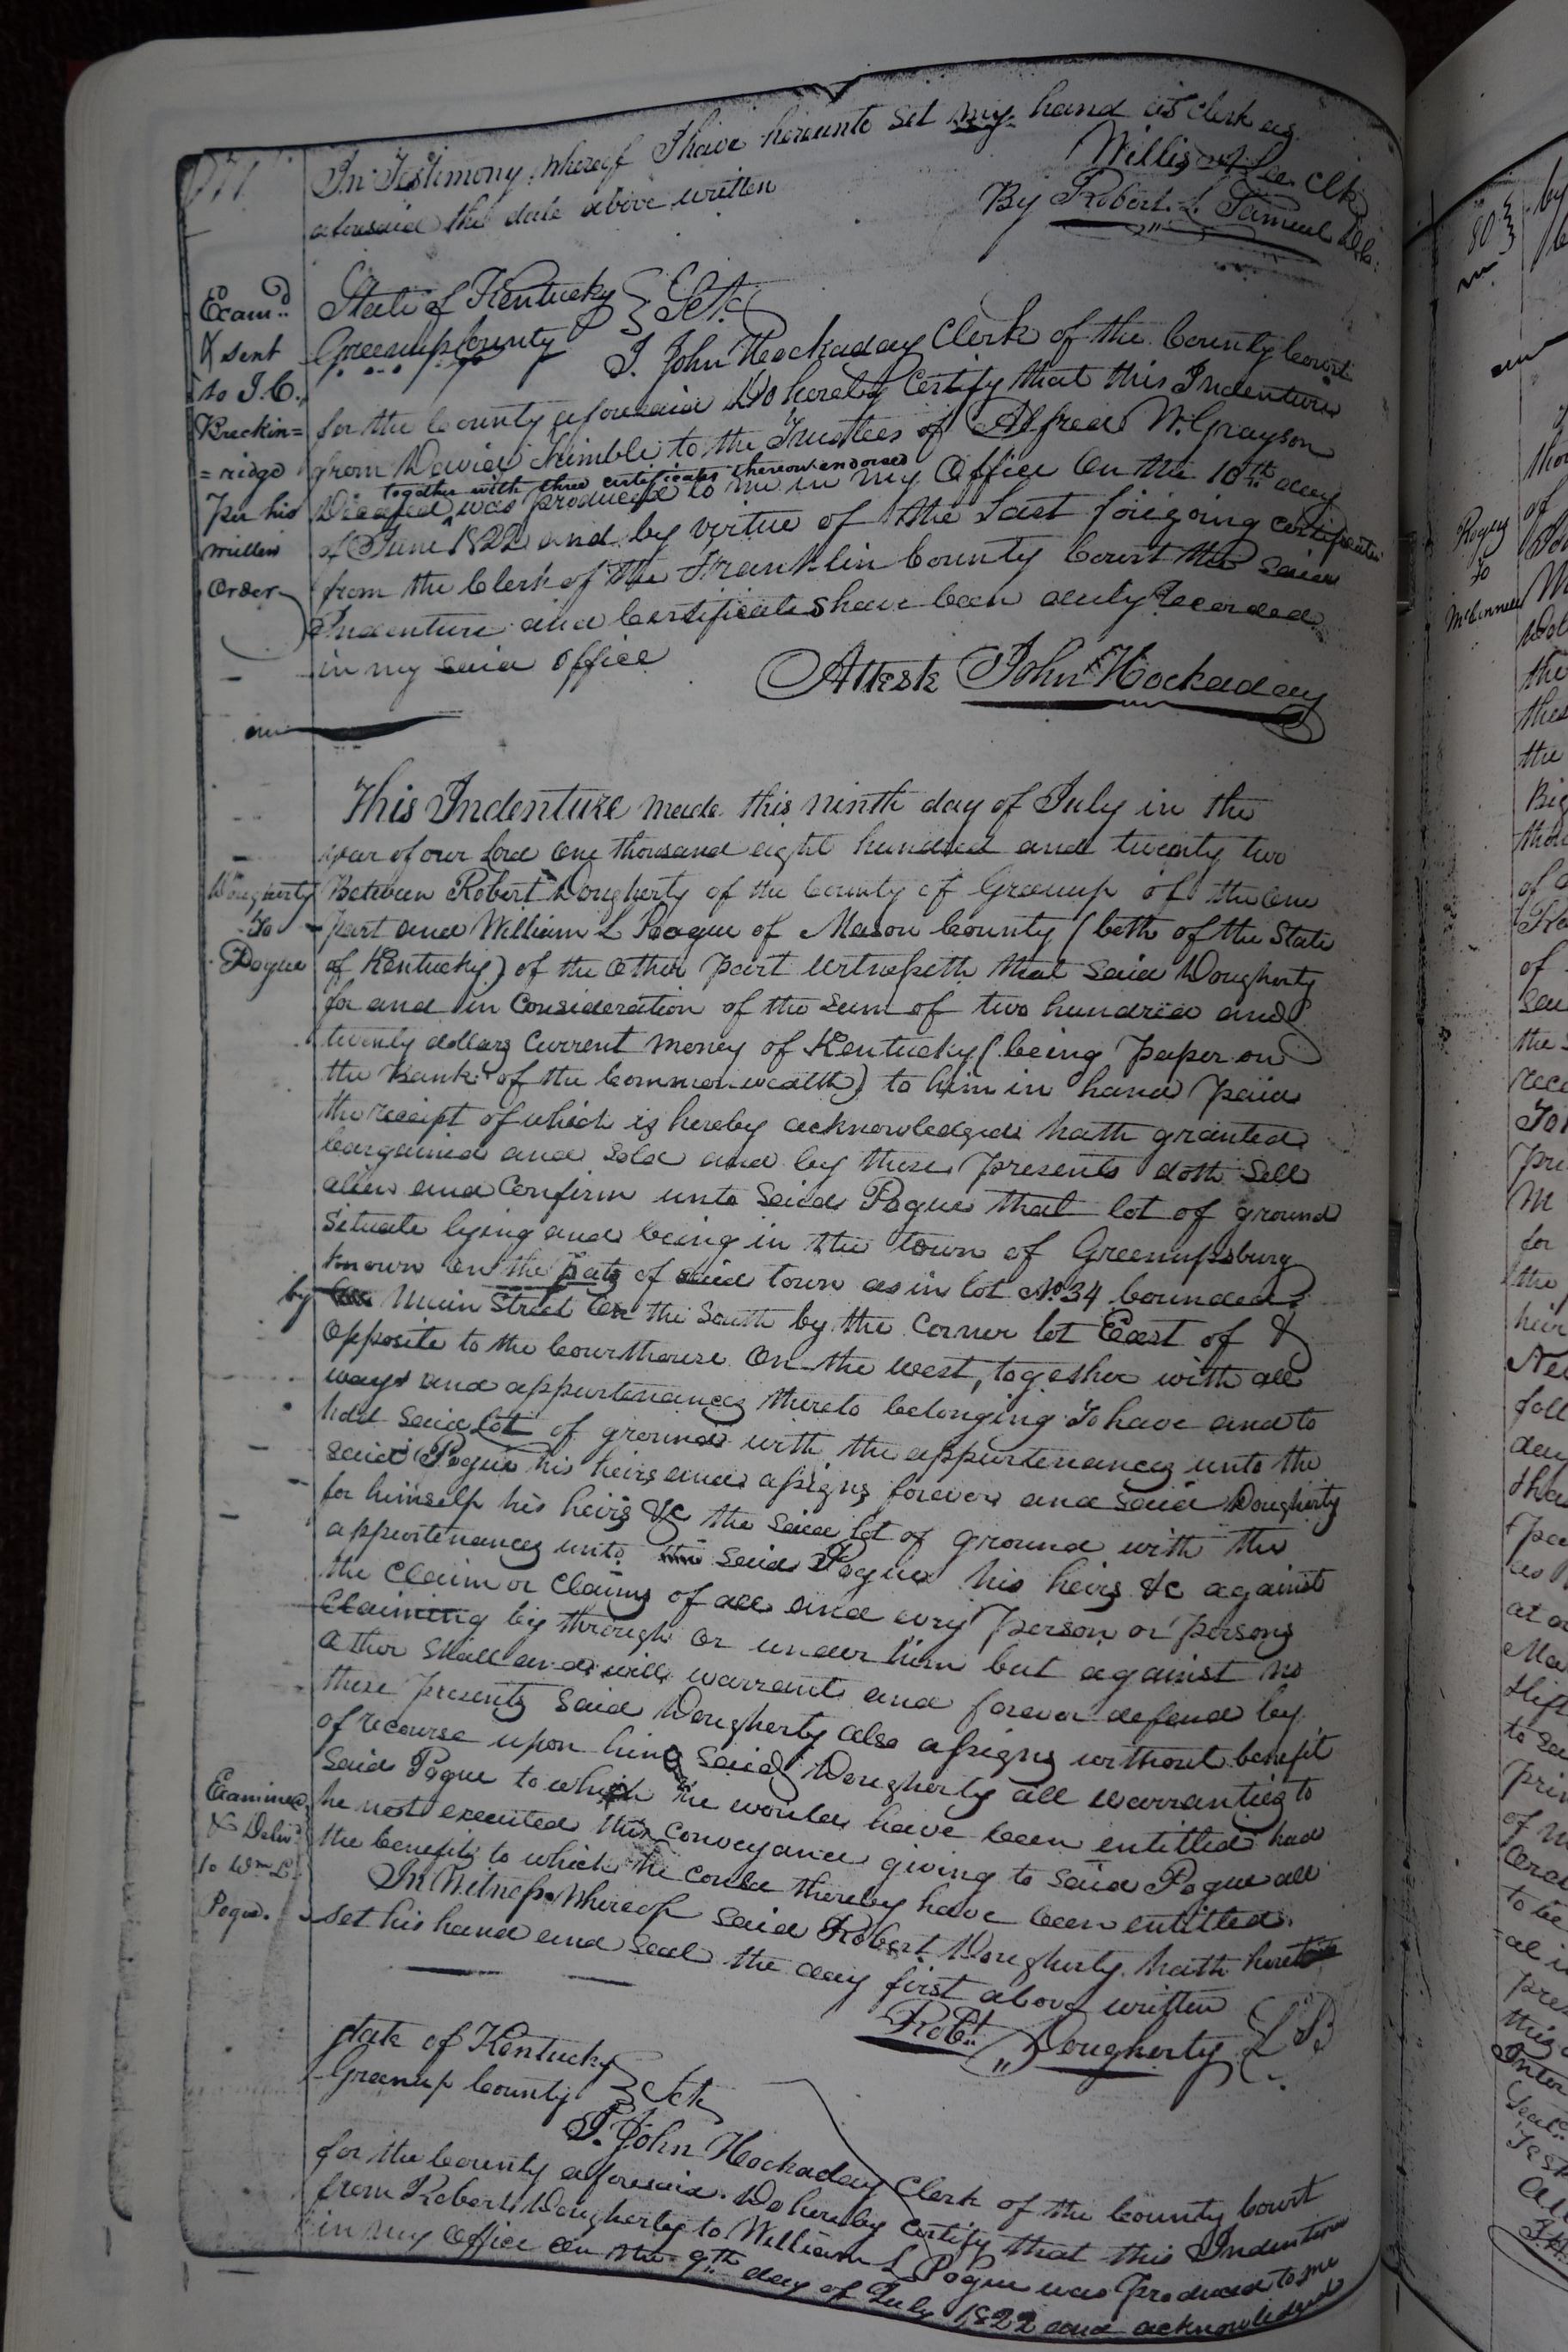 In Testimony whereof I have hereunto set my hand as Clerk as
aforesaid the date above written
Willis A Lee Clk
By Robert L. Samuel
State of Kentucky } Sct.
Greenup County
I. John Hockaday Clerk of the County Court
for the County aforesaid Do hereby Certify that this Indenture
from David Trimble to the Trustees of Alfred W. Grayson
together with three certificates thereon endorsed
Deceased was produced to me in my Office On the 10th day
of June 1822 and by virtue of the Last foregoing certificate
from the Clerk of the Franklin County Court the said
Indenture and Certificates have been duly Recorded
in my said office
Attest John Hockaday
Exam.d
& sent
to J. C.
Breckin=
=ridge
Per his
written
Order
This Indenture made this ninth day of July in the
year of our Lord One thousand eight hundred and twenty two
Between Robert Dougherty of the County of Greenup of the One
part and William L Poague of Mason County (both of the State
of Kentucky) of the Other part Witnesseth that Said Dougherty
for and in Consideration of the Sum of two hundred and
twenty dollars Current money of Kentucky (being paper on
the Bank of the Commonwealth) to him in hand paid
the receipt of which is hereby acknowledged hath granted
bargained and Sold and by these presents doth Sell
alien and Confirm unto Said Pogue that lot of ground
Situate lying and being in the town of Greenupsburg
Known on the plat of said town as in lot No 34 bounded
by Main Street On the South by the Corner lot East of &
Opposite to the Courthouse On the west, together with all
ways and appurtenances thereto belonging To have and to
hold said lot of ground with the appurtenances unto the
said Pogue his heirs and assigns forever and said Dougherty
for himself his heirs &c the said lot of ground with the
appurtenances unto the said Pogue his heirs &c against
the Claim or Claims of all and evry person or persons
Claiming by through or under him but against no
other Shall and will warrant and forever defend by
these presents Said Dougherty also assigns without benefit
of recourse upon him said Dougherty all warranties to
Said Pogue to which he would have been entitled had
he not executed this Conveyance giving to said Pogue all
the benefits to which he could thereby have been entitled.
In Witness Whereof said Robert Dougherty hath hereto
set his hand and seal the day first above written
Robt. Dougherty
Dougherty
To
Pogue
Examined
& Deliv.d
to Wm L
Pogue.
State of Kentucky
Greenup County } Sct
I. John Hockaday Clerk of the County Court
for the County aforesaid. Do hereby Certify that this Indenture
from Robert Dougherty to William L Pogue was produced to me
in my Office On the 9th day of July 1822 and acknowledged
Rogers
to
McConnell